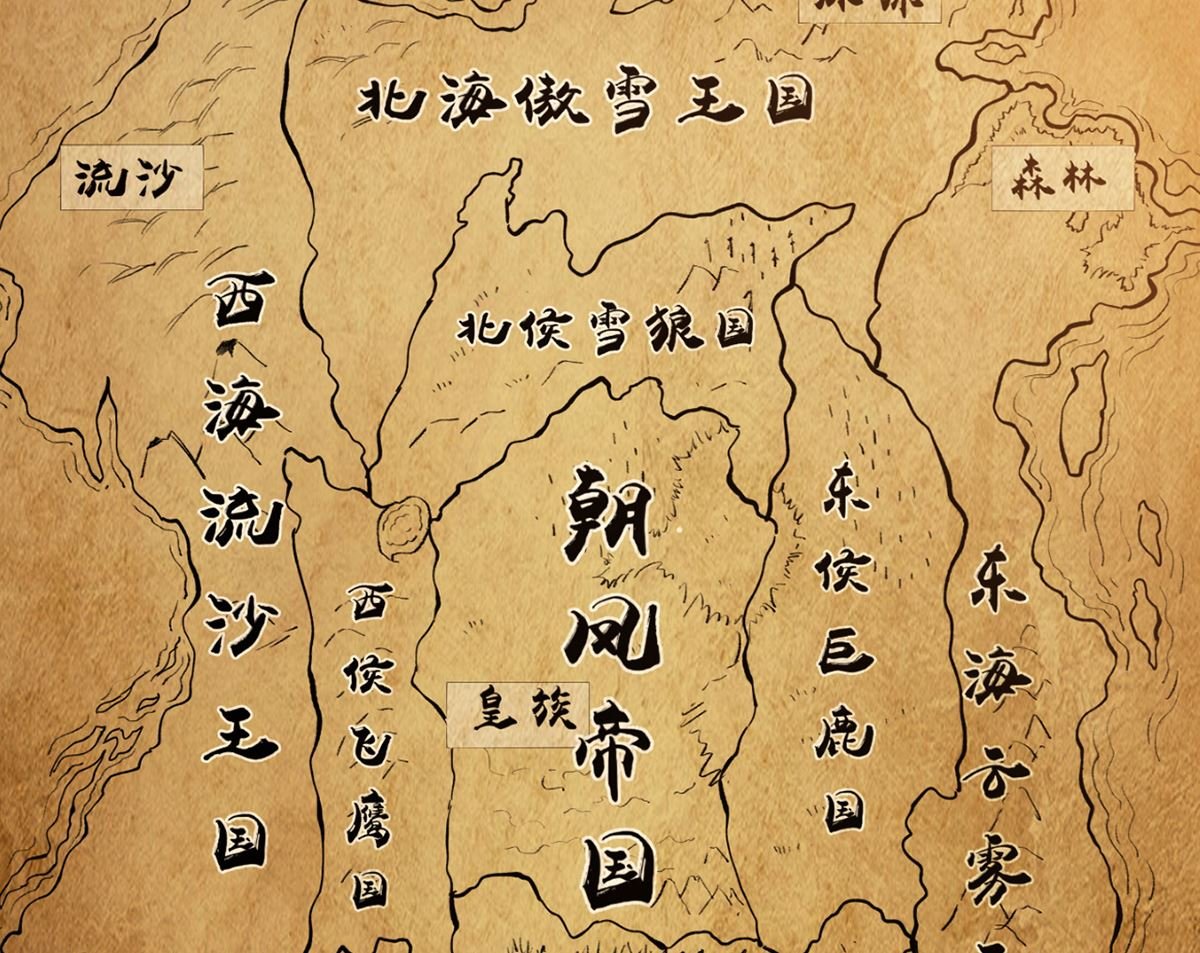 北海傲雪王国
流沙
森林
西海流沙王国
北侯雪狼国
朝凤帝国
东侯巨鹿国
西侯飞鹰国
皇族
东海云雾